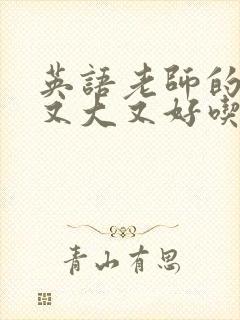 英語老師的
又大又好喫
青山有思